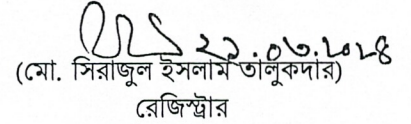 ২১.০৩.২০২৪
(মো. সিরাজুল ইসলাম তালুকদার)
রেজিস্ট্রার